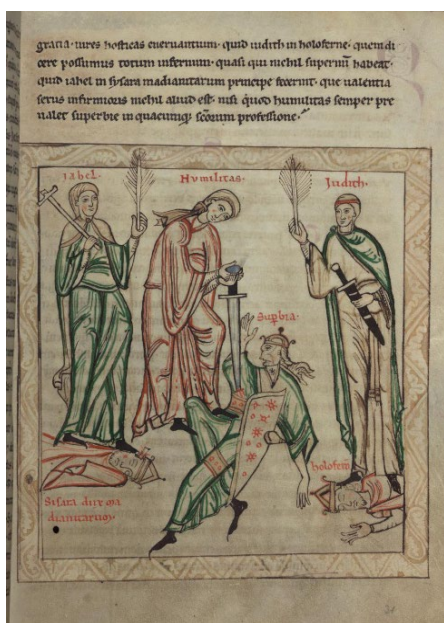 gratia. uires hosticas eneruantium. quid iudith in holoferne. quem di
cere possumus totum infernum. quasi qui nichil supernū habeat.
quid iahel in sysara madianitarum principe fecerint. que ualentia
sexus infirmioris nichil aliud est. nisi quod humilitas semper pre
ualet superbie in quacumq; scōrum professione.
Iahel.
Humilitas.
Judith.
Supbia.
holofern
Sisara dux ma
dianitarum.